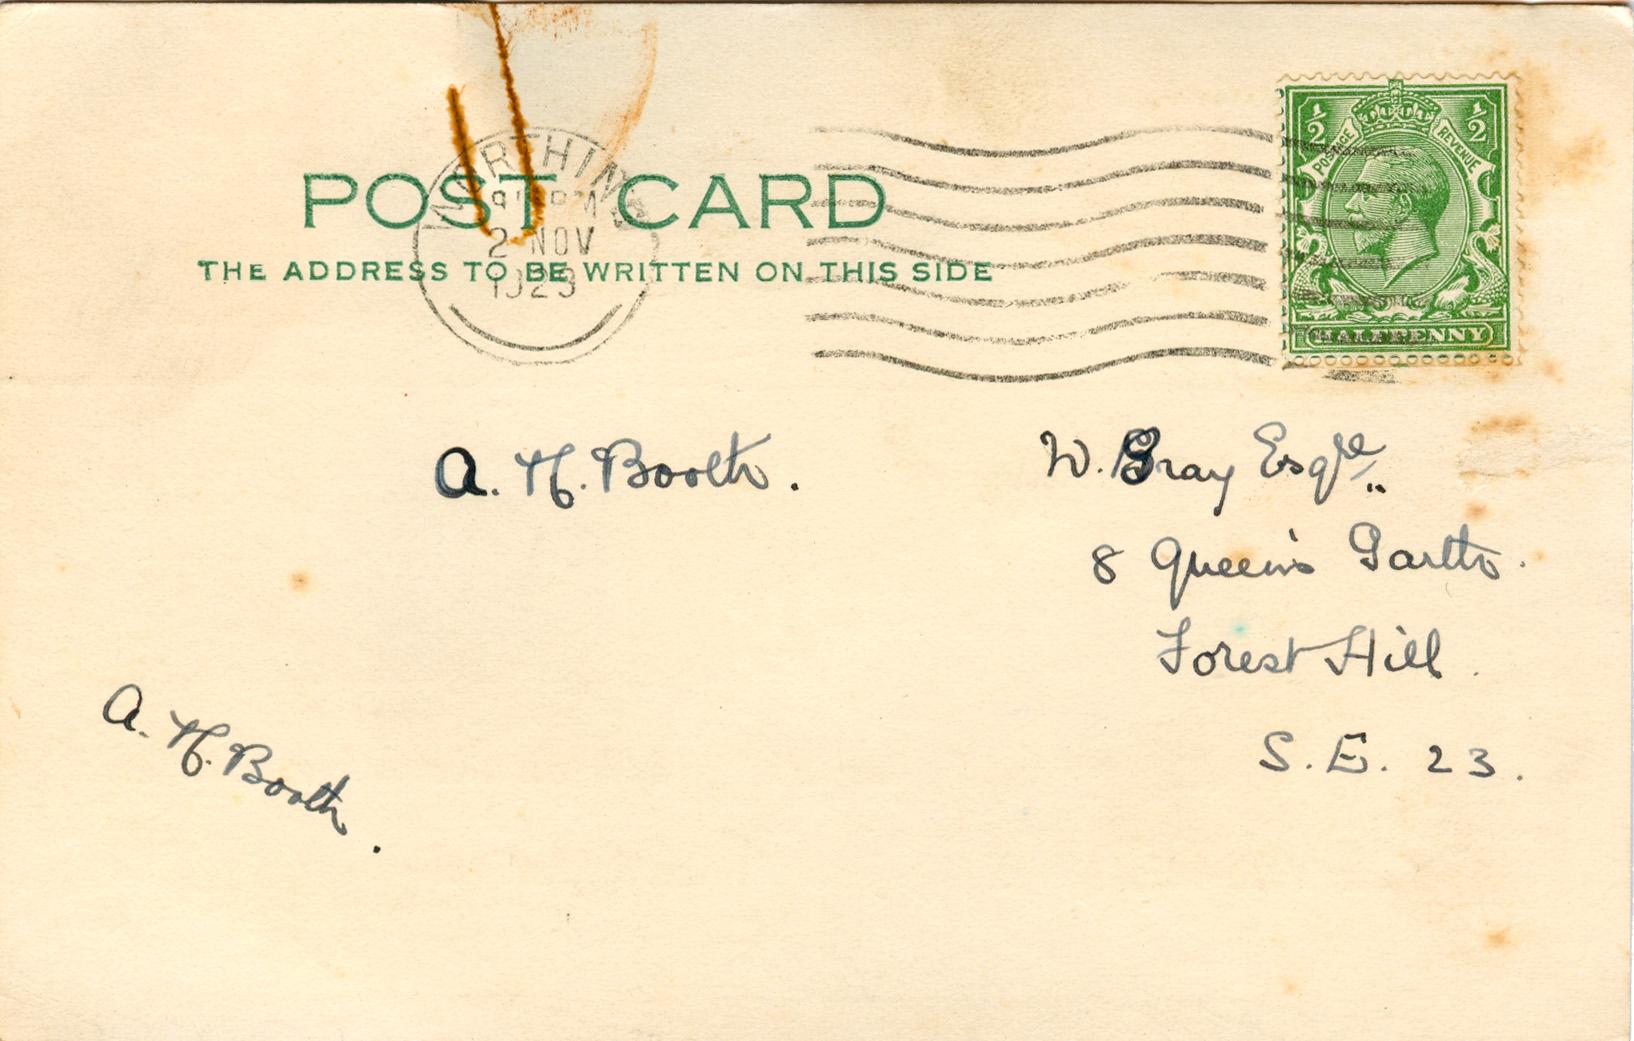 POST CARD
THE ADDRESS TO BE WRITTEN ON THIS SIDE
WORTHING
PM
2 NOV
½ ½
POSTAGE REVENUE
HALFPENNY
A. H. Booth.
W. Gray Esqre
8 Queen's Garth.
Forest Hill.
S.E. 23.
A. H. Booth.